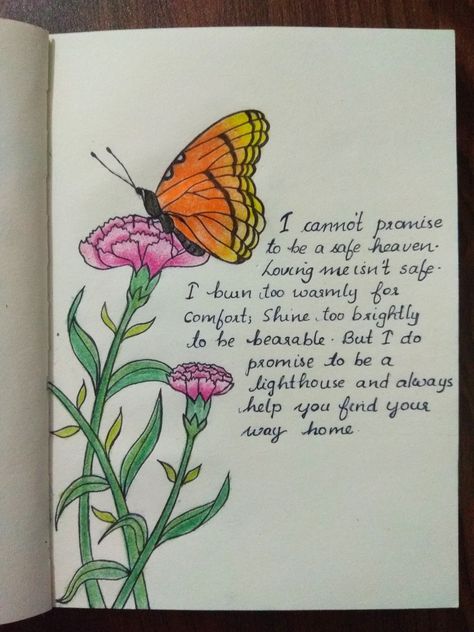 I cannot promise
to be a safe heaven.
Loving me isn't safe.
I burn too warmly for
comfort; Shine too brightly
to be bearable. But I do
promise to be a
lighthouse and always
help you find your
way home.